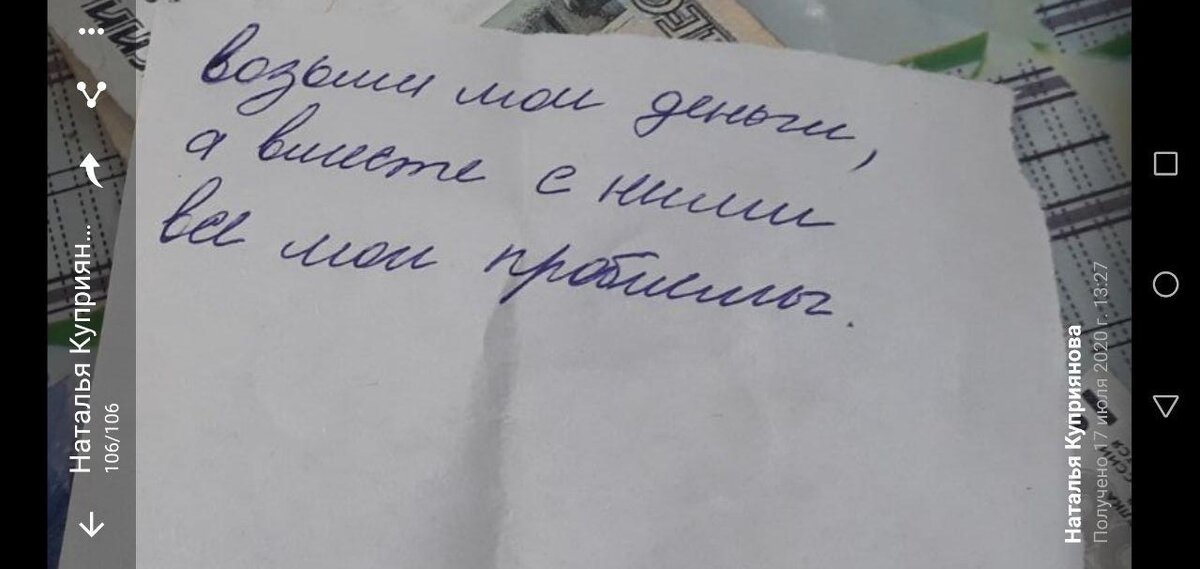 возьми мои деньги,
а вместе с ними
все мои проблемы.
Наталья Куприян...
106/106
Наталья Куприянова
Получено 17 июля 2020 г. 13:27